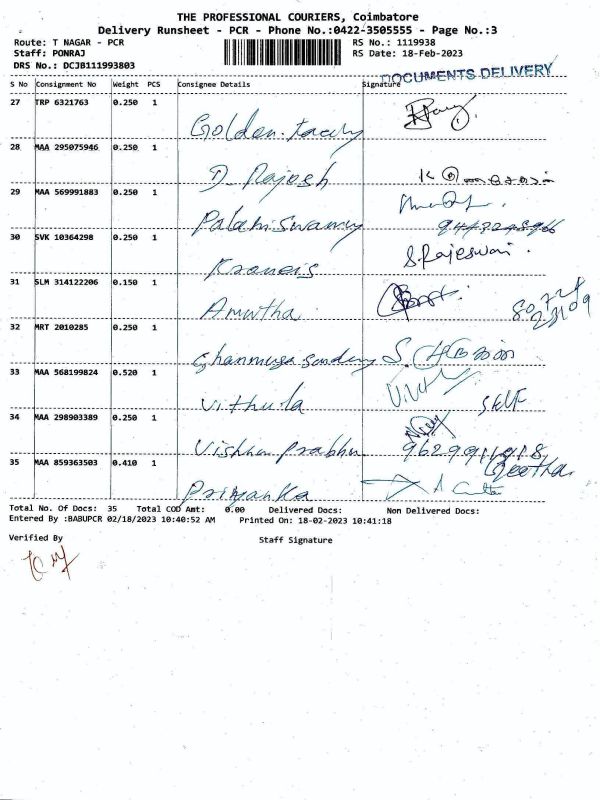 THE PROFESSIONAL COURIERS, Coimbatore
Delivery Runsheet - PCR - Phone No.:0422-3505555 - Page No.:3
Route: T NAGAR - PCR RS No.: 1119938
Staff: PONRAJ RS Date: 18-Feb-2023
DRS No.: DCJB111993803
DOCUMENTS DELIVERY
S No Consignment No Weight PCS Consignee Details Signature
27 TRP 6321763 0.250 1
Golden
28 MAA 295075946 0.250 1
D. Rajesh
29 MAA 569991883 0.250 1
Palaniswamy 9443248966
30 SVK 10364298 0.250 1 S.Rajeswari.
31 SLM 314122206 0.150 1
Amutha 80724
23109
32 MRT 2010285 0.250 1
Shanmuga Sundaram S.
33 MAA 568199824 0.520 1
Vithula SELF
34 MAA 298903389 0.250 1
Vishnu Prabhu 9629911918
35 MAA 859363503 0.410 1 Geetha
Priyanka
Total No. Of Docs: 35 Total COD Amt: 0.00 Delivered Docs: Non Delivered Docs:
Entered By :BABUPCR 02/18/2023 10:40:52 AM Printed On: 18-02-2023 10:41:18
Verified By Staff Signature